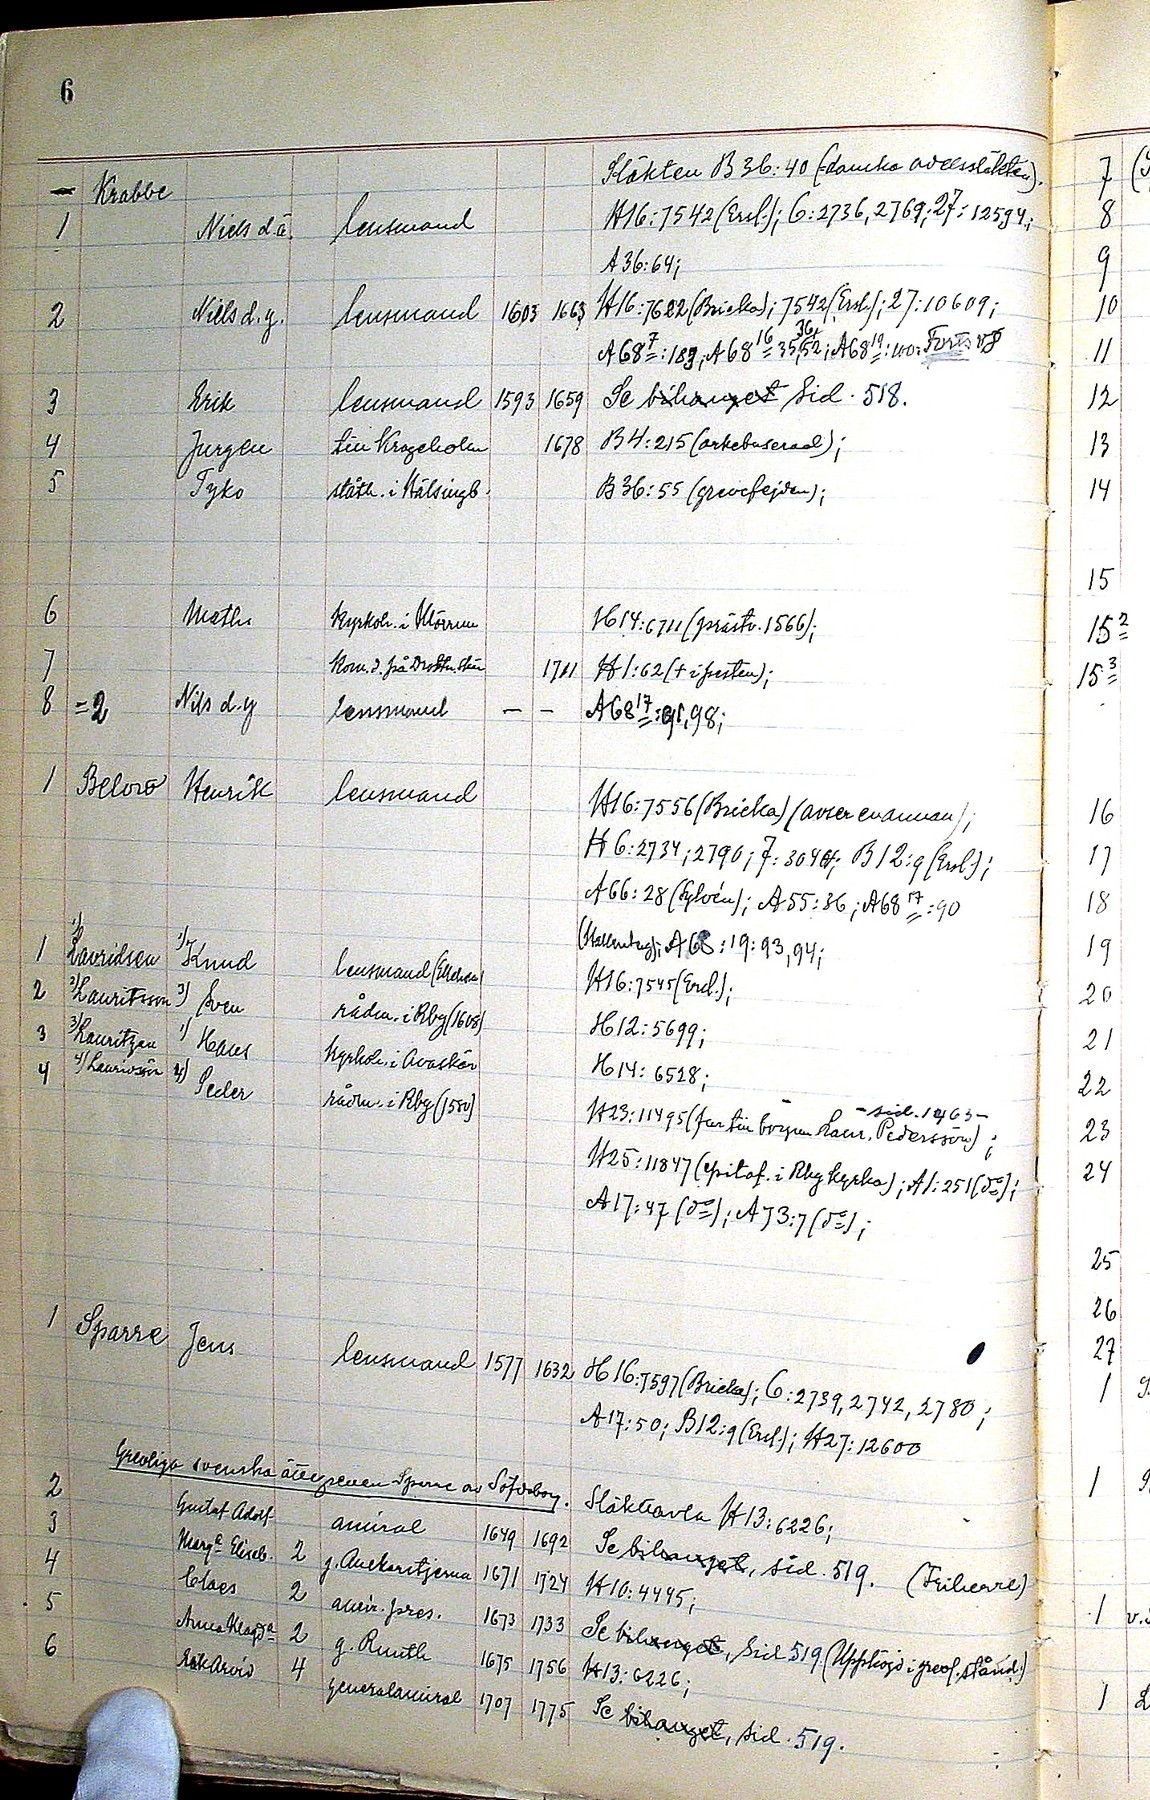 6
Krabbe Släkten B 36:40 (danska adelssläkten).
1 Niels d.ä. lensmand H16:7542 (Ersl.); 6:2736, 2769; 27:12594;
A 36:64;
2 Niels d.y. lensmand 1603 1663 H16:7622 (Bricka); 7542 (Ersl.); 27:10609;
A68 7:189, A68 16 35,52; A68 19:100: Forts v 8
3 Erik lensmand 1593 1659 Se bihanget Sid. 518.
4 Jurgen till Krageholm 1678 B4:215 (arkebuserad);
5 Tyko ståth. i Hälsingb. B 36:55 (grevefejden);
6 Maths kyrkoh. i Mörrum H14:6711 (prästv. 1566);
7 1711 H1:62 († i pesten);
8 =2 Nils d.y lensmand – – A68 17:91, 98;
1 Below Henrik lensmand H16:7556 (Bricka) (avser en annan);
H 6:2734; 2790; 7:3044; B12:9 (Ersl.);
A66:28 (Sylvén); A55:36; A68 17:90
A68:19:93, 94;
1 1) Lauridsen 1) Knud lensmand H16:7545 (Ersl.);
2 2) Lauritsson 3) Sven rådm. i Rby (1608) H12:5699;
3 3) Lauritzen 1) Hans kyrkoh. i Avaskär H14:6528;
4 4) Laurivssön 4) Peder rådm. i Rby (1580) H23:11495 (far till borgm. Laur. Pedersson); – sid. 1463 –
H25:11847 (epitaf. i Rby kyrka); A1:251 (do);
A17:47 (do); A73:7 (do);
1 Sparre Jens lensmand 1577 1632 H16:7597 (Bricka); 6:2739, 2742, 2780;
A17:50; B12:9 (Ersl.); H27:12600
Grevliga svenska ättegrenen Sparre av Söfdeborg. Släkttavla H13:6226;
2 Gustaf Adolf amiral 1649 1692 Se bihanget, sid. 519. (Friherre)
3 Marga Elisab. 2 g. Anckarstjerna 1671 1724 H10:4445;
4 Claes 2 amir. pres. 1673 1733 Se bihanget, Sid 519 (Upphöjd i grevl. stånd.)
5 Anna 2 g. Ruuth 1675 1756 H13:6226;
6 Erik Arvid 4 generalamiral 1707 1775 Se bihanget, sid. 519.
7
8
9
10
11
12
13
14
15
15 2
15 3
16
17
18
19
20
21
22
23
24
25
26
27
1
1
1 v.
1